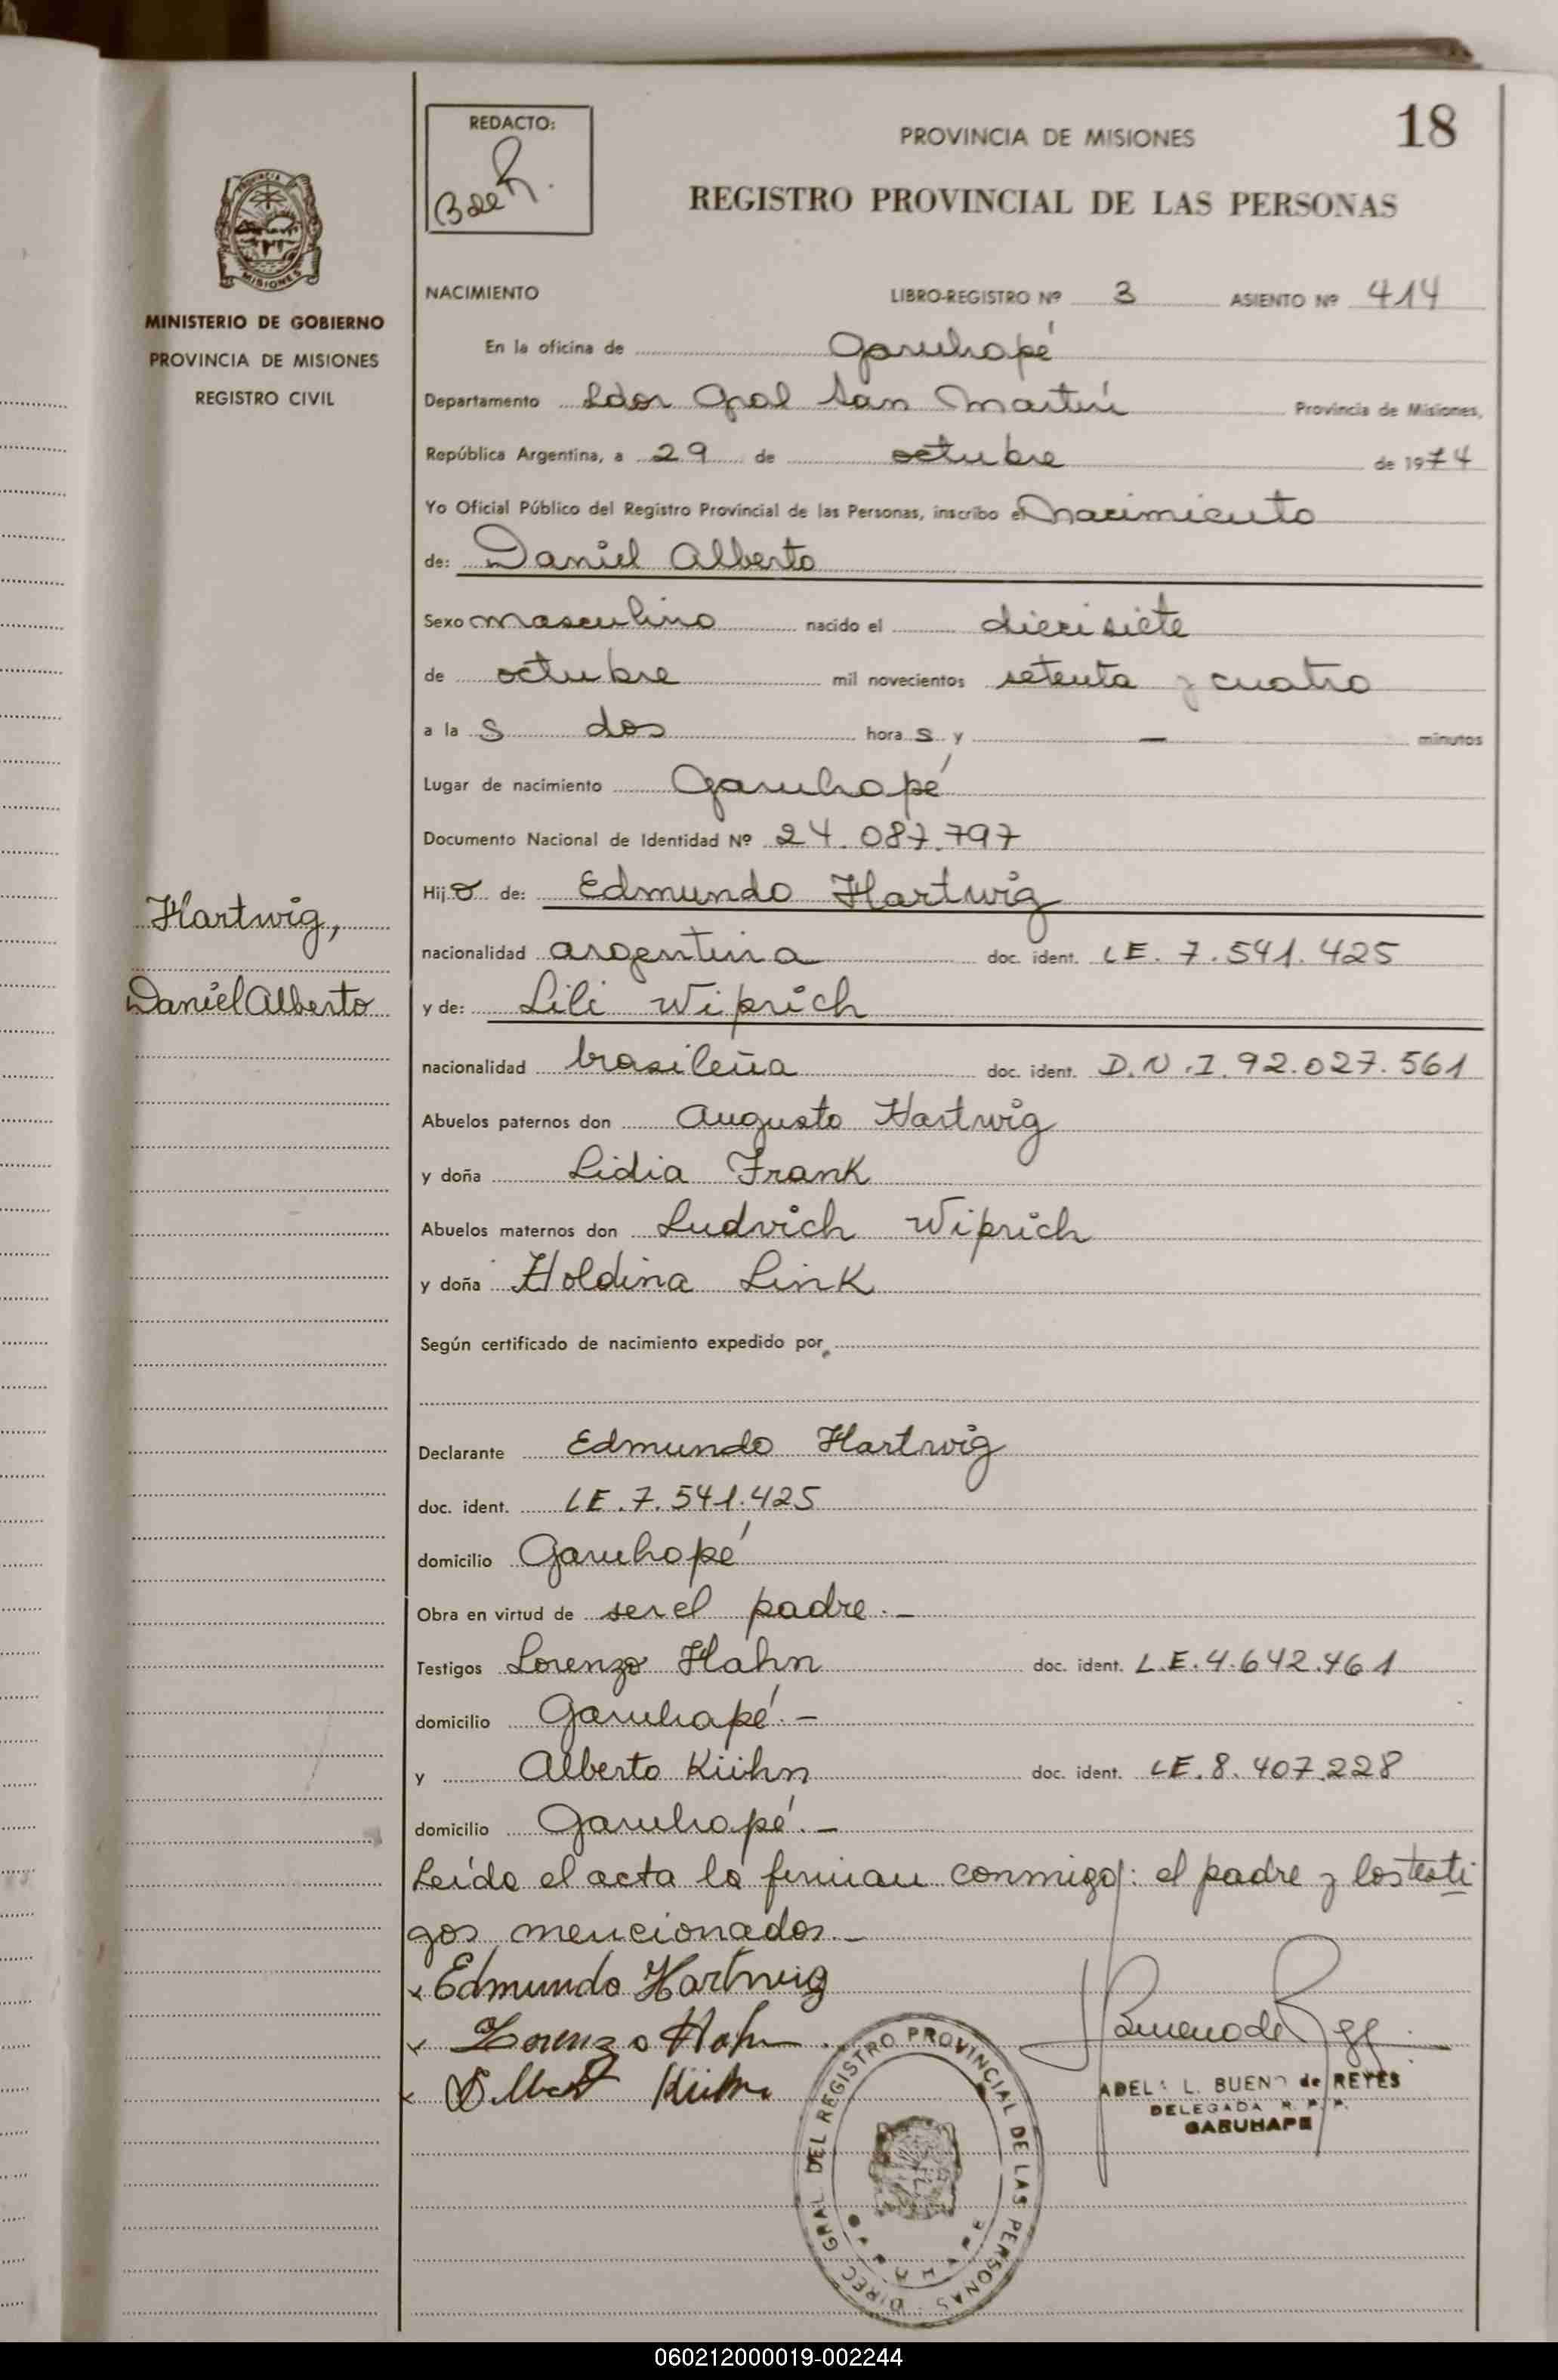 REDACTO:
B de R.
PROVINCIA DE MISIONES
18
REGISTRO PROVINCIAL DE LAS PERSONAS
PROVINCIA
MISIONES
MINISTERIO DE GOBIERNO
PROVINCIA DE MISIONES
REGISTRO CIVIL
NACIMIENTO LIBRO-REGISTRO Nº 3 ASIENTO Nº 414
En la oficina de Garuhapé
Departamento Ldor Gral San Martín Provincia de Misiones,
República Argentina, a 29 de octubre de 1974
Yo Oficial Público del Registro Provincial de las Personas, inscribo el nacimiento
de: Daniel Alberto
Sexo masculino nacido el diecisiete
de octubre mil novecientos setenta y cuatro
a la s dos hora s y — minutos
Lugar de nacimiento Garuhapé
Documento Nacional de Identidad Nº 24.087.797
Hij o de: Edmundo Hartwig
Hartwig,
Daniel Alberto
nacionalidad argentina doc. ident. LE. 7.541.425
y de: Lili Wiprich
nacionalidad brasileña doc. ident. D.N.I. 92.027.561
Abuelos paternos don Augusto Hartwig
y doña Lidia Frank
Abuelos maternos don Ludvich Wiprich
y doña Holdina Link
Según certificado de nacimiento expedido por
Declarante Edmundo Hartwig
doc. ident. LE. 7.541.425
domicilio Garuhapé
Obra en virtud de ser el padre.-
Testigos Lorenzo Hahn doc. ident. L.E. 4.642.461
domicilio Garuhapé.-
y Alberto Kühn doc. ident. LE. 8.407.228
domicilio Garuhapé.-
Leída el acta la firman conmigo: el padre y los testi
gos mencionados.-
x Edmundo Hartwig
x Lorenzo Hahn
x Albert Kühn
Bueno de Reyes
ADELA L. BUENO de REYES
DELEGADA R. P. P.
GARUHAPE
DIREC GRAL DEL REGISTRO PROVINCIAL DE LAS PERSONAS
GARUHAPE
060212000019-002244